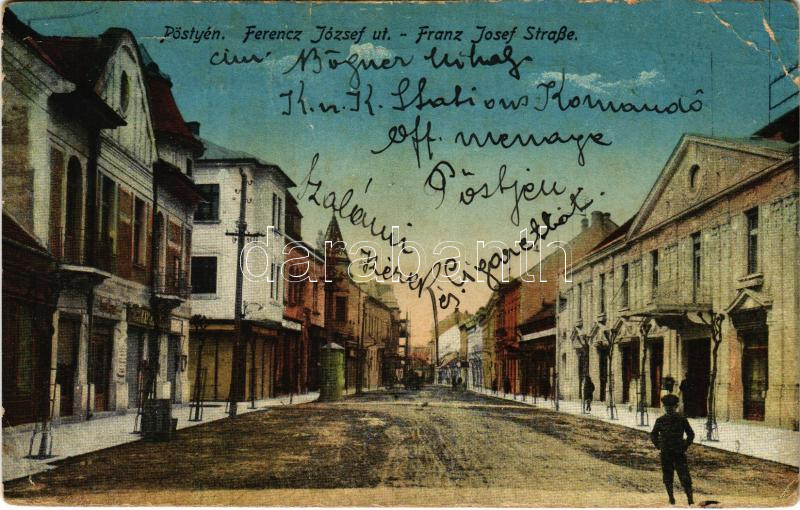 Pöstyén. Ferencz József ut. - Franz Josef Straße.
cím: Bögner Mihály
K.u.K. Stations Komandó
Off. menage
Pöstjen
Szalámi
kérek
és Cigarettát.
darabanth